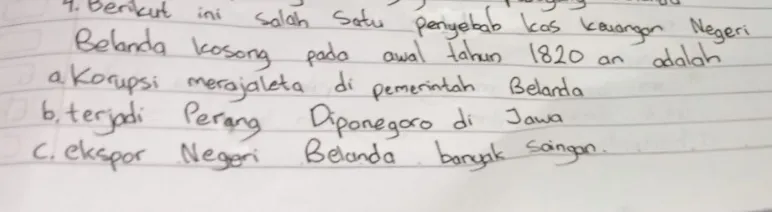 4. Berikut ini salah satu penyebab kas keuangan Negeri
Belanda kosong pada awal tahun 1820 an adalah
a. Korupsi merajaleta di pemerintah Belanda
b. terjadi Perang Diponegoro di Jawa
c. ekspor Negeri Belanda banyak saingan.